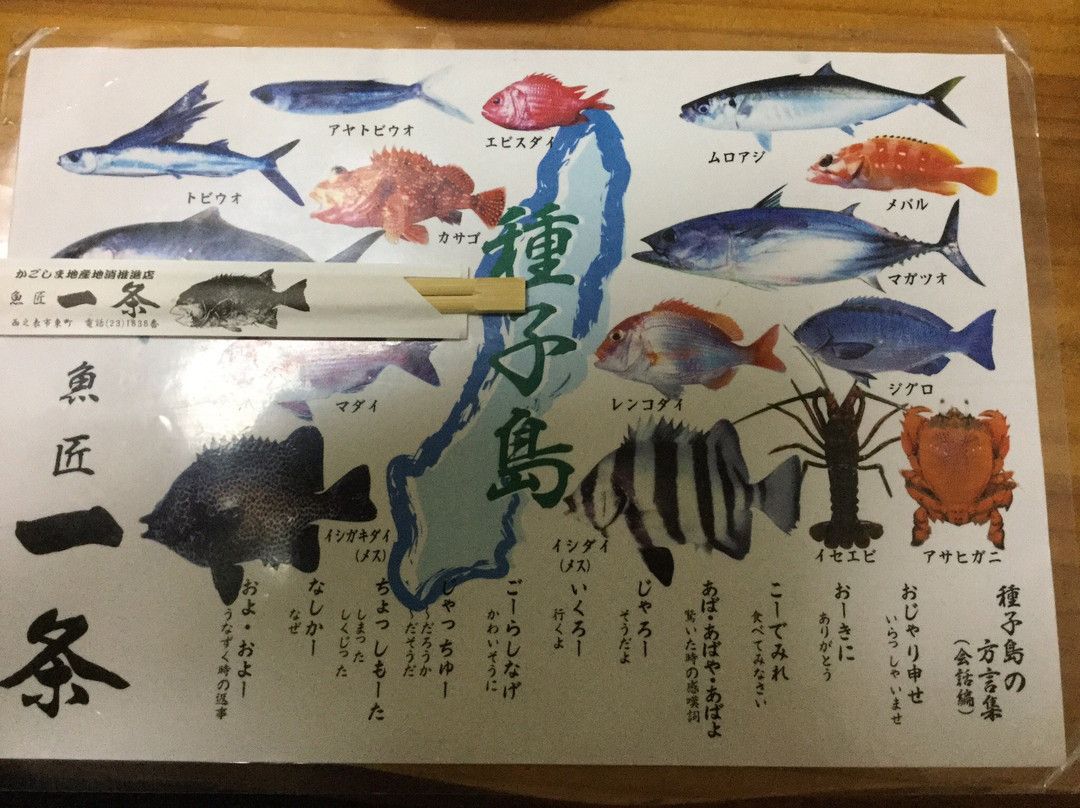 アヤトビウオ
エビスダイ
ムロアジ
トビウオ
カサゴ
メバル
マガツオ
種子島
かごしま地産地消推進店
魚匠 一条
西之表市東町 電話(23)1838番
マダイ
レンコダイ
ジグロ
魚匠 一条
イシガキダイ
(メス)
イシダイ
(メス)
イセエビ
アサヒガニ
種子島の
方言集
(会話編)
おじゃり申せ
いらっしゃいませ
おーきに
ありがとう
こーでみれ
食べてみなさい
あば・あばや・あばよ
驚いた時の感嘆詞
じゃろー
そうだよ
いくろー
行くよ
ごーらしなげ
かわいそうに
じゃっちゅー
〜だろうか
〜だそうだ
ちょっしもーた
しまった
しくじった
なしかー
なぜ
およ・およー
うなずく時の返事